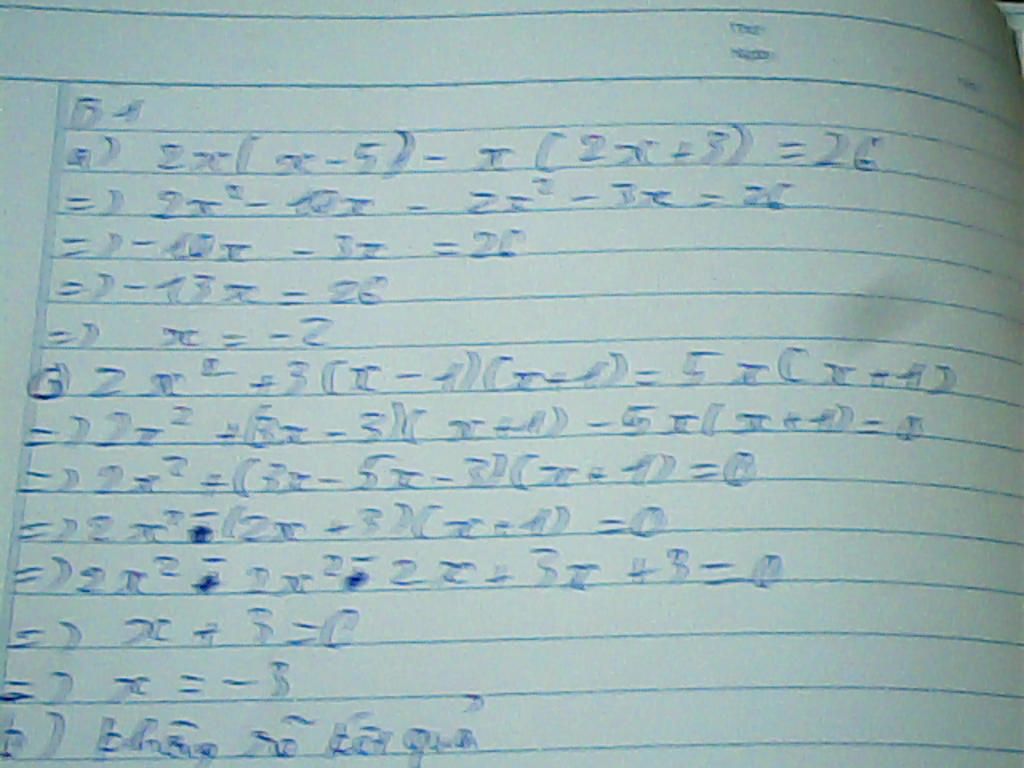 B1
a) 2x(x-5) - x(2x+3) = 26
=> 2x² - 10x - 2x² - 3x = 26
=> -10x - 3x = 26
=> -13x = 26
=> x = -2
c) 2x² + 3(x-1)(x+1) = 5x(x+1)
=> 2x² + (3x-3)(x+1) - 5x(x+1) = 0
=> 2x² + (3x-5x-3)(x+1) = 0
=> 2x² - (2x+3)(x+1) = 0
=> 2x² - 2x² - 2x + 3x + 3 = 0
=> x + 3 = 0
=> x = -3
b) không rõ kết quả